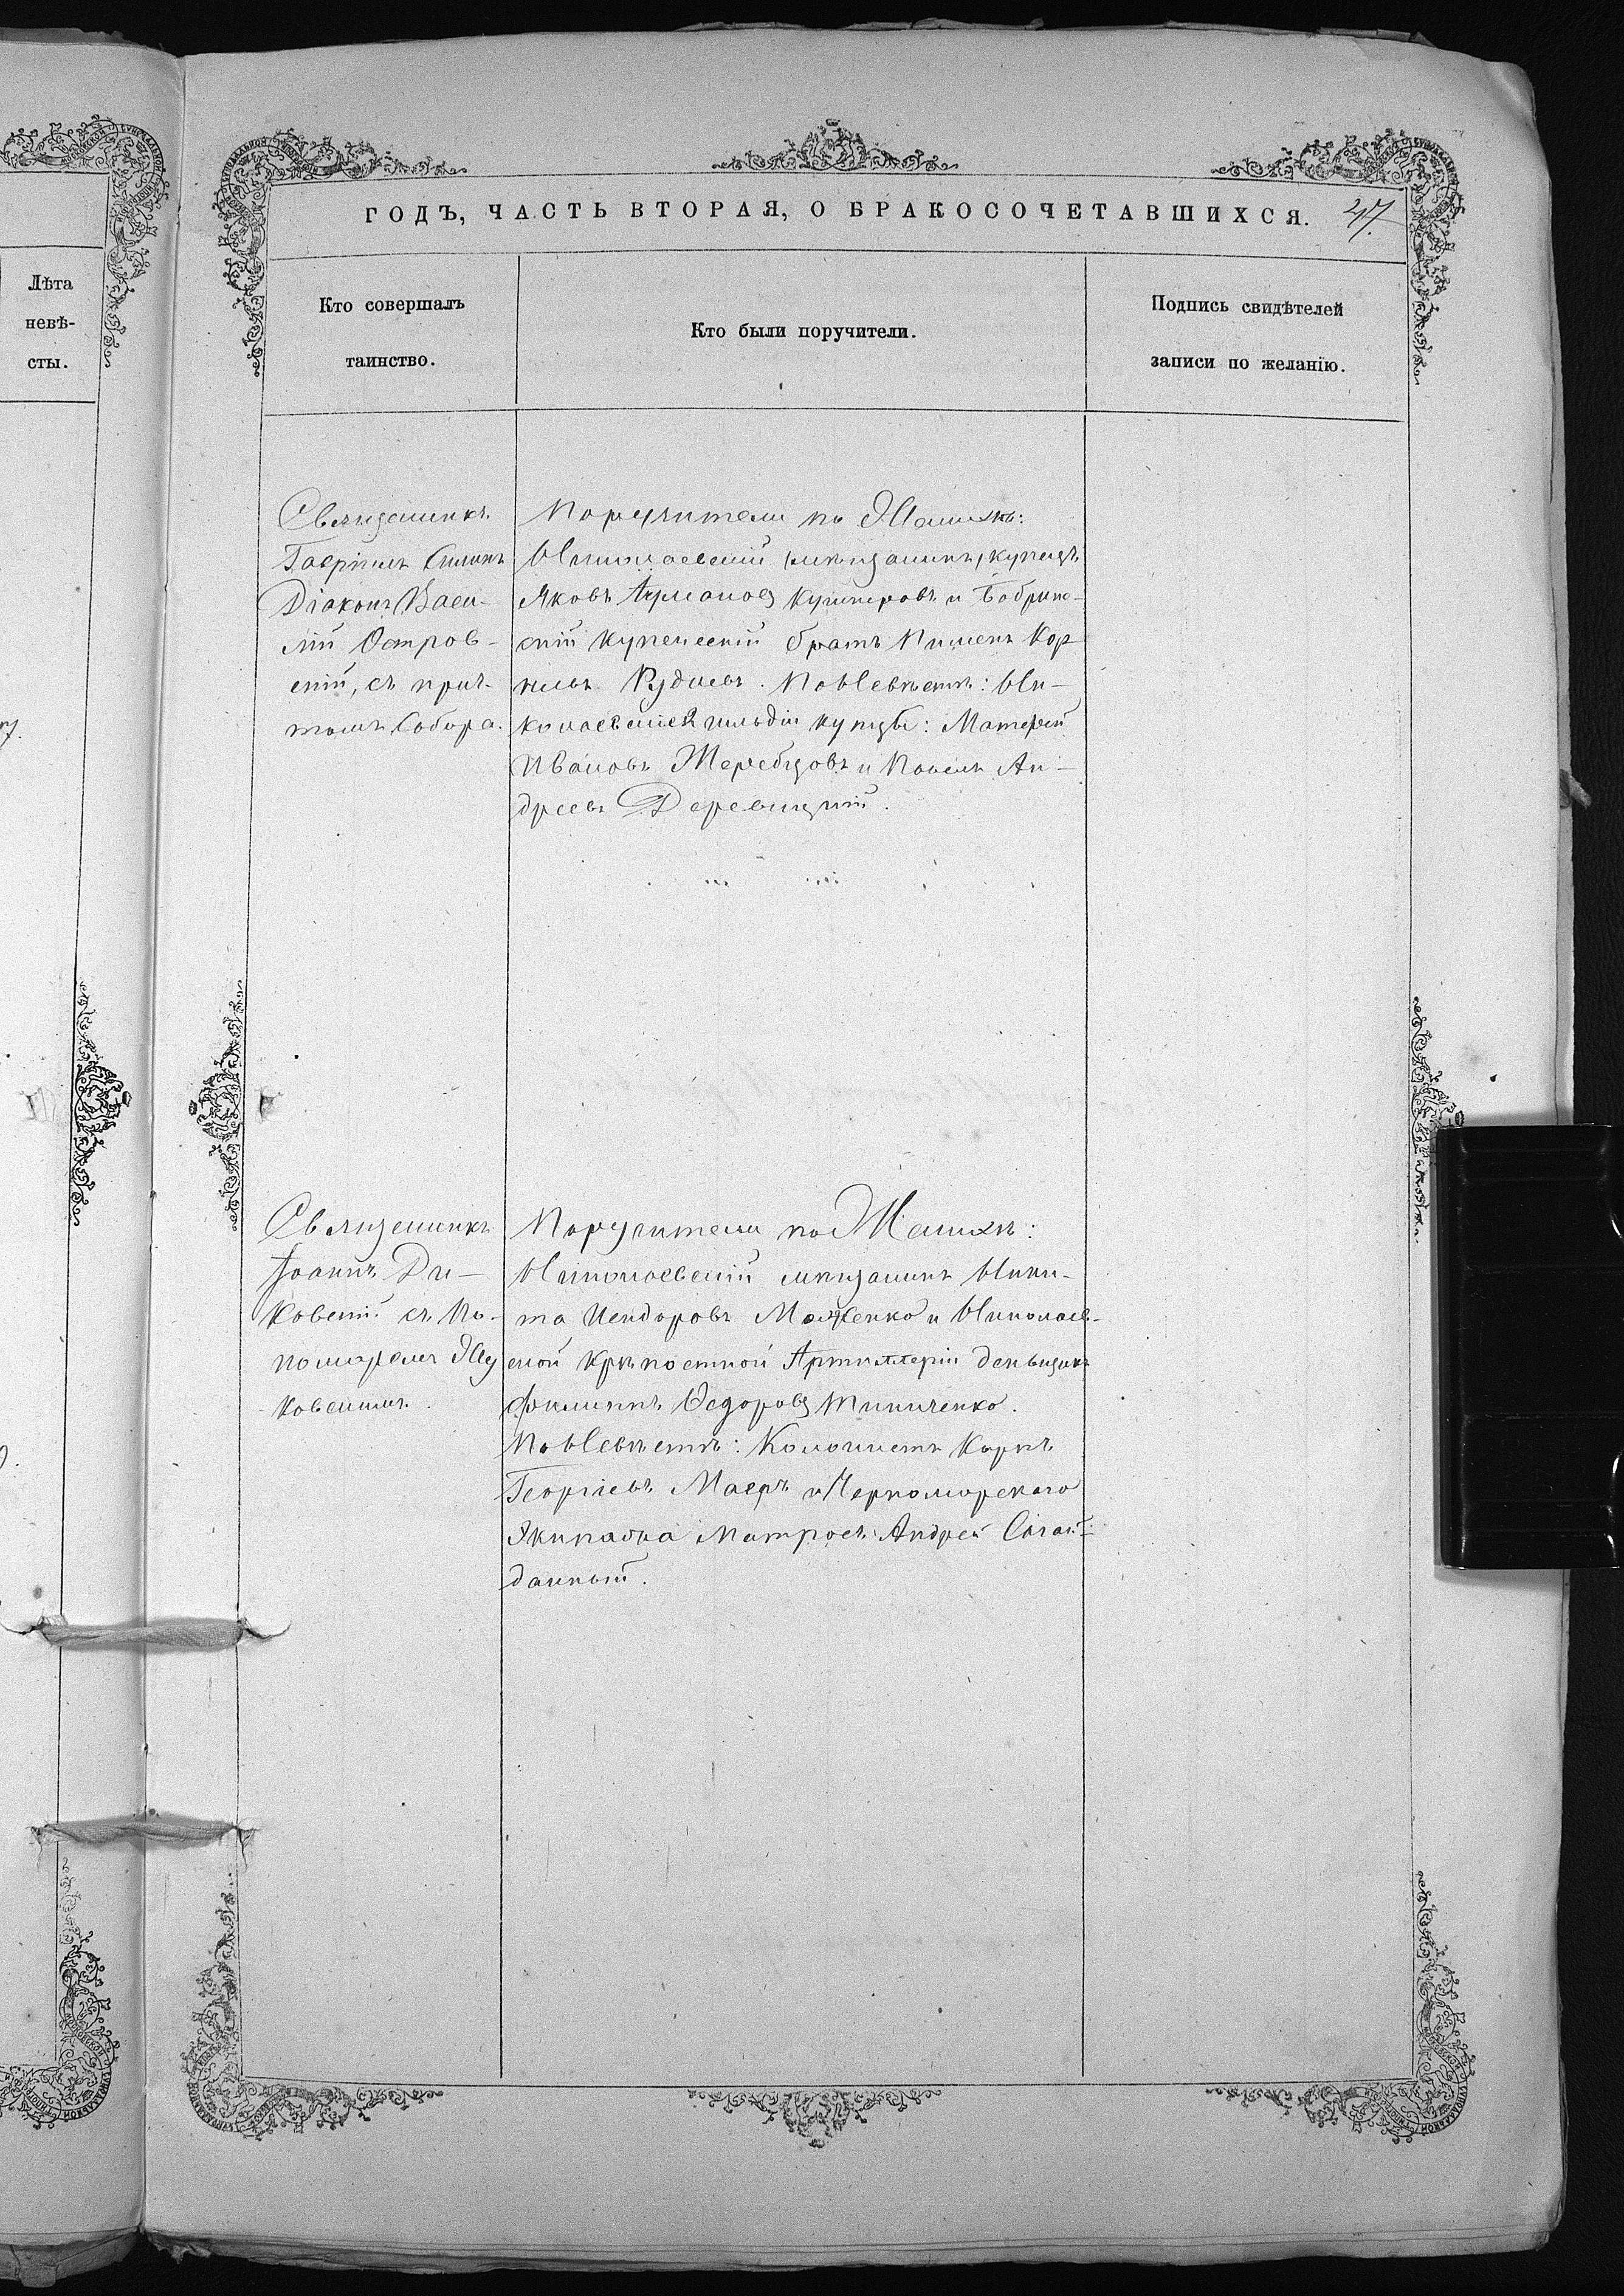 ГОДЪ, ЧАСТЬ ВТОРАЯ, О БРАКОСОЧЕТАВШИХСЯ. 47.
Лѣта
невѣ-
сты.
Кто совершалъ
таинство.
Кто были поручители.
Подпись свидѣтелей
записи по желанію.
Священникъ
Гавріилъ
Діаконъ Васи-
лій Остров-
скій, съ прич-
томъ Собора.
Поручители по Женихѣ:
Николаевскій (мѣщанинъ) купецъ
Яковъ и Бобринс-
кій купеческій братъ Пименъ Кор
ніевъ Рудневъ. По Невѣстѣ: Ни-
колаевскіе 2 гильдіи купцы: Матфей
Ивановъ Жеребцовъ и Павелъ Ан-
дреевъ Деревицкій.
Священникъ
Іоаннъ Ди-
ковскій съ По-
номаремъ Жу
ковскимъ.
Поручители по Женихѣ:
Николаевскій мѣщанинъ Ники-
та Исидоровъ Можченко и Николаев-
ской Крѣпостной Артиллеріи деньщикъ
Филиппъ Ѳедоровъ Миниченко.
По Невѣстѣ: Колонистъ Карлъ
Георгіевъ Маеръ и Черноморскаго
Экипажа Матросъ Андрей Сагай-
дачный.